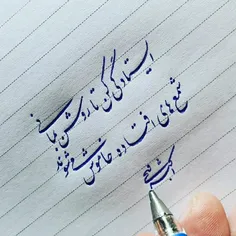 ایستادگی کن تا روشن بمانی
شمع های افتاده خاموش میشوند